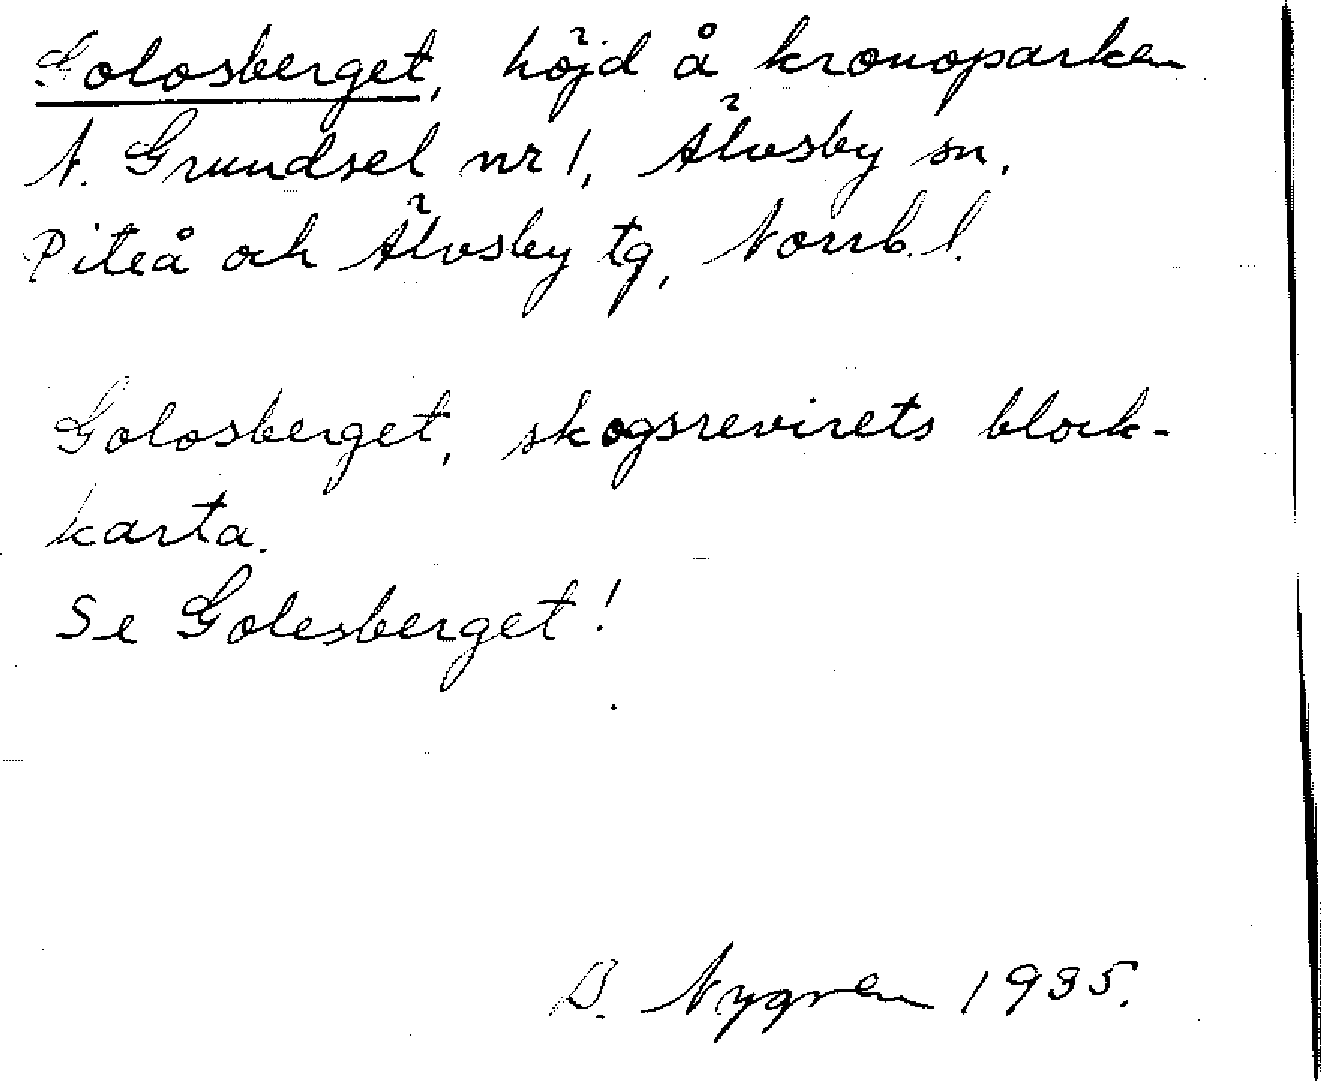 Golosberget, höjd å kronoparken
N. Grundsel nr 1, Älvsby sn,
Piteå och Älvsby tg, Norrb. l.
Golosberget, skogsrevirets block-
karta.
Se Golesberget!
B. Nygren 1935.